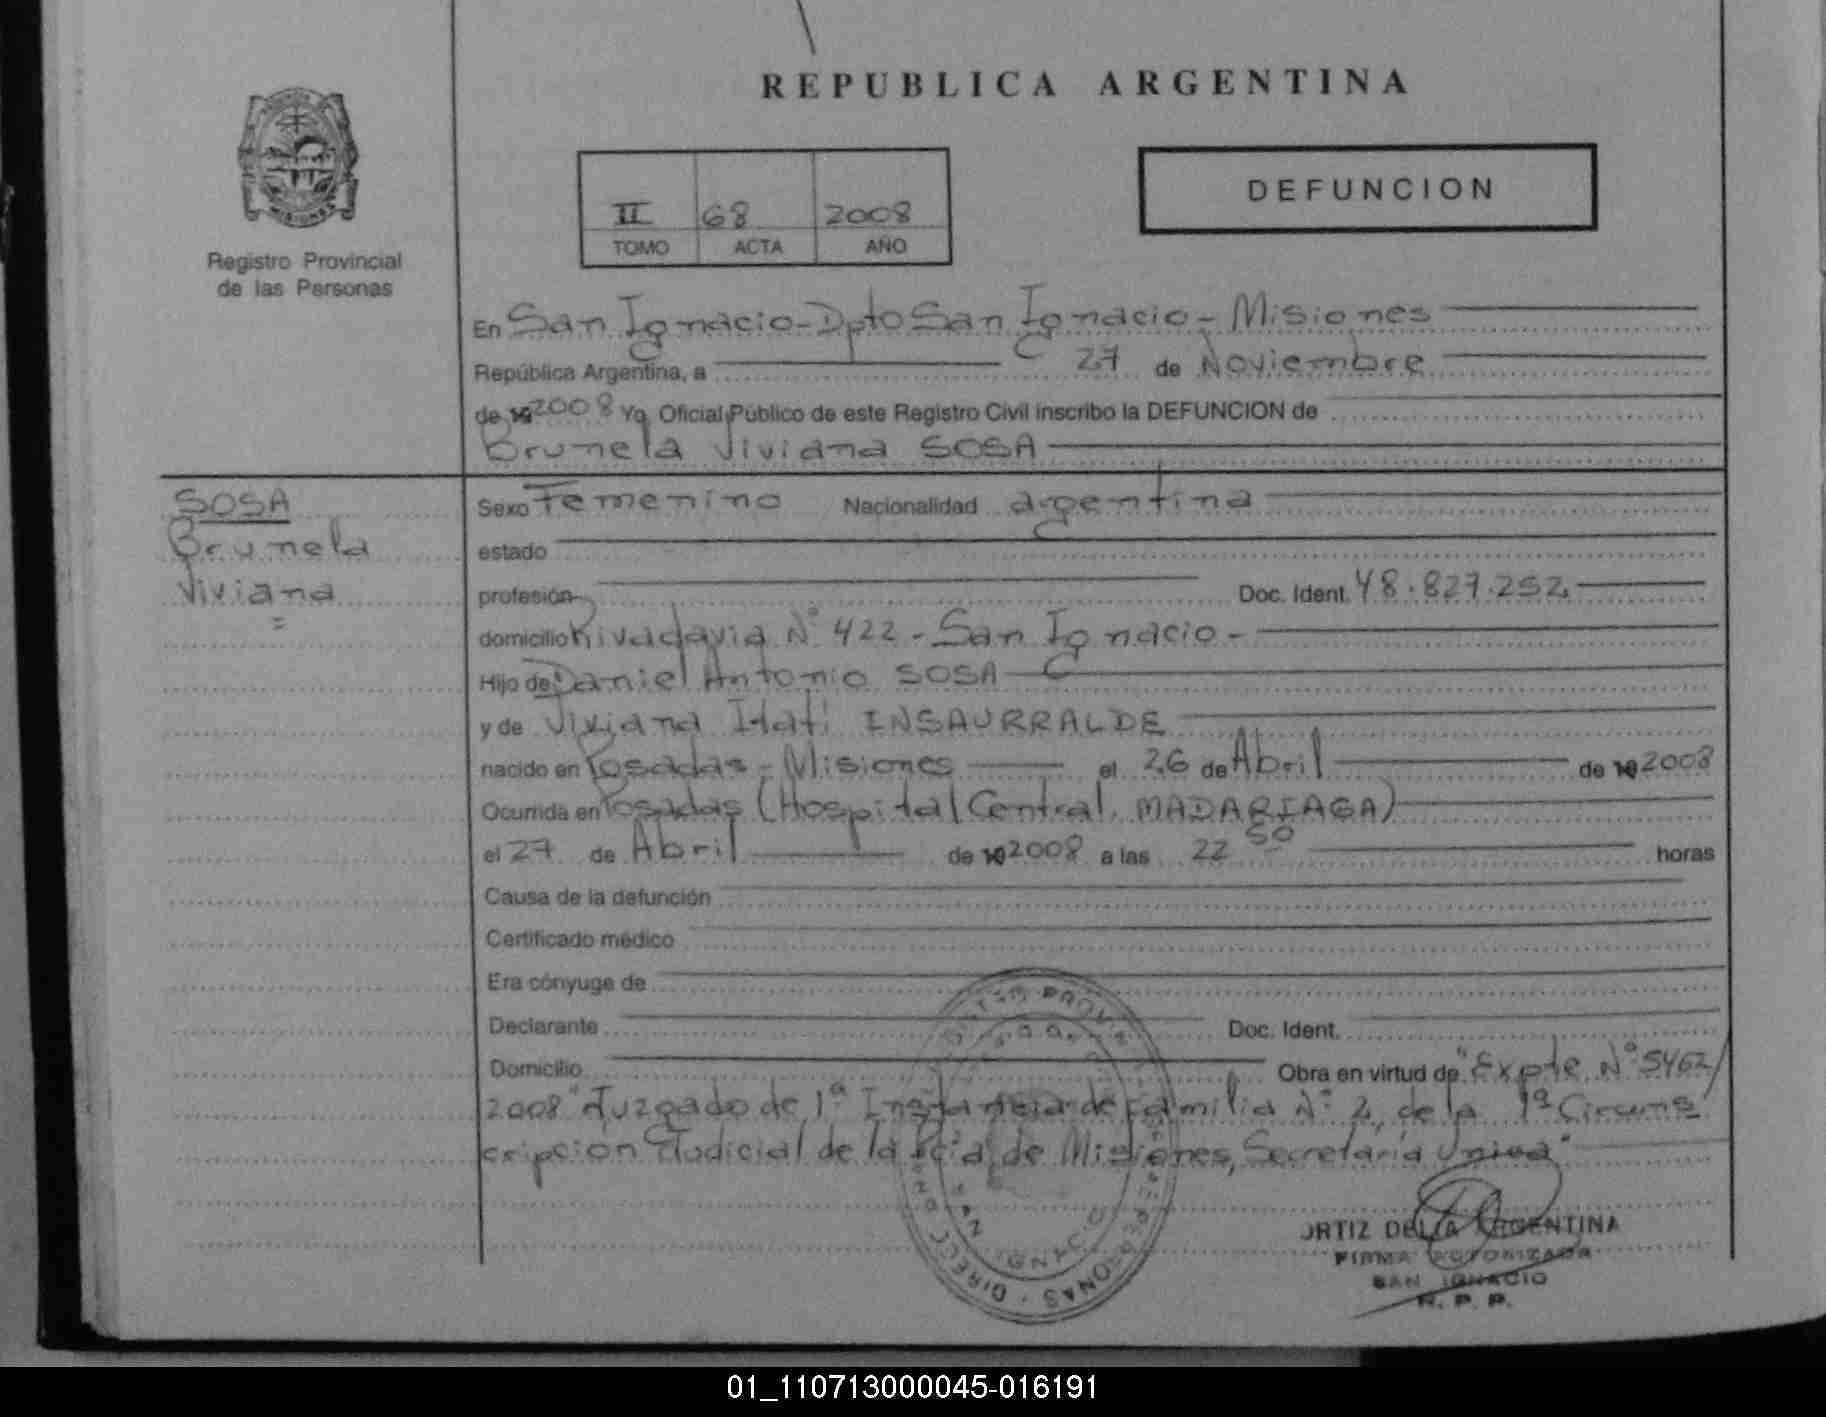 REPUBLICA ARGENTINA
MISIONES
Registro Provincial
de las Personas
II 68 2008
TOMO ACTA AÑO
DEFUNCION
En San Ignacio-Dpto San Ignacio- Misiones
República Argentina, a 27 de Noviembre
de 19 2008 Yo, Oficial Público de este Registro Civil inscribo la DEFUNCION de
Brunela Viviana SOSA
SOSA
Brunela
Viviana
Sexo Femenino Nacionalidad argentina
estado
profesión Doc. Ident. 48.827.252
domicilio Rivadavia N° 422 - San Ignacio -
Hijo de Daniel Antonio SOSA
y de Viviana Itatí INSAURRALDE
nacido en Posadas - Misiones el 26 de Abril de 19 2008
Ocurrida en Posadas (Hospital Central MADARIAGA)
el 27 de Abril de 19 2008 a las 22 50 horas
Causa de la defunción
Certificado médico
Era cónyuge de
Declarante Doc. Ident.
Domicilio Obra en virtud de "Expte N° 5462/
2008" Juzgado de 1ª Instancia de Familia N° 2, de la 1ª Circuns
cripción Judicial de la Pcia de Misiones, Secretaría Unica"
ORTIZ DELIA ARGENTINA
FIRMA AUTORIZADA
SAN IGNACIO
R. P. P.
01_110713000045-016191